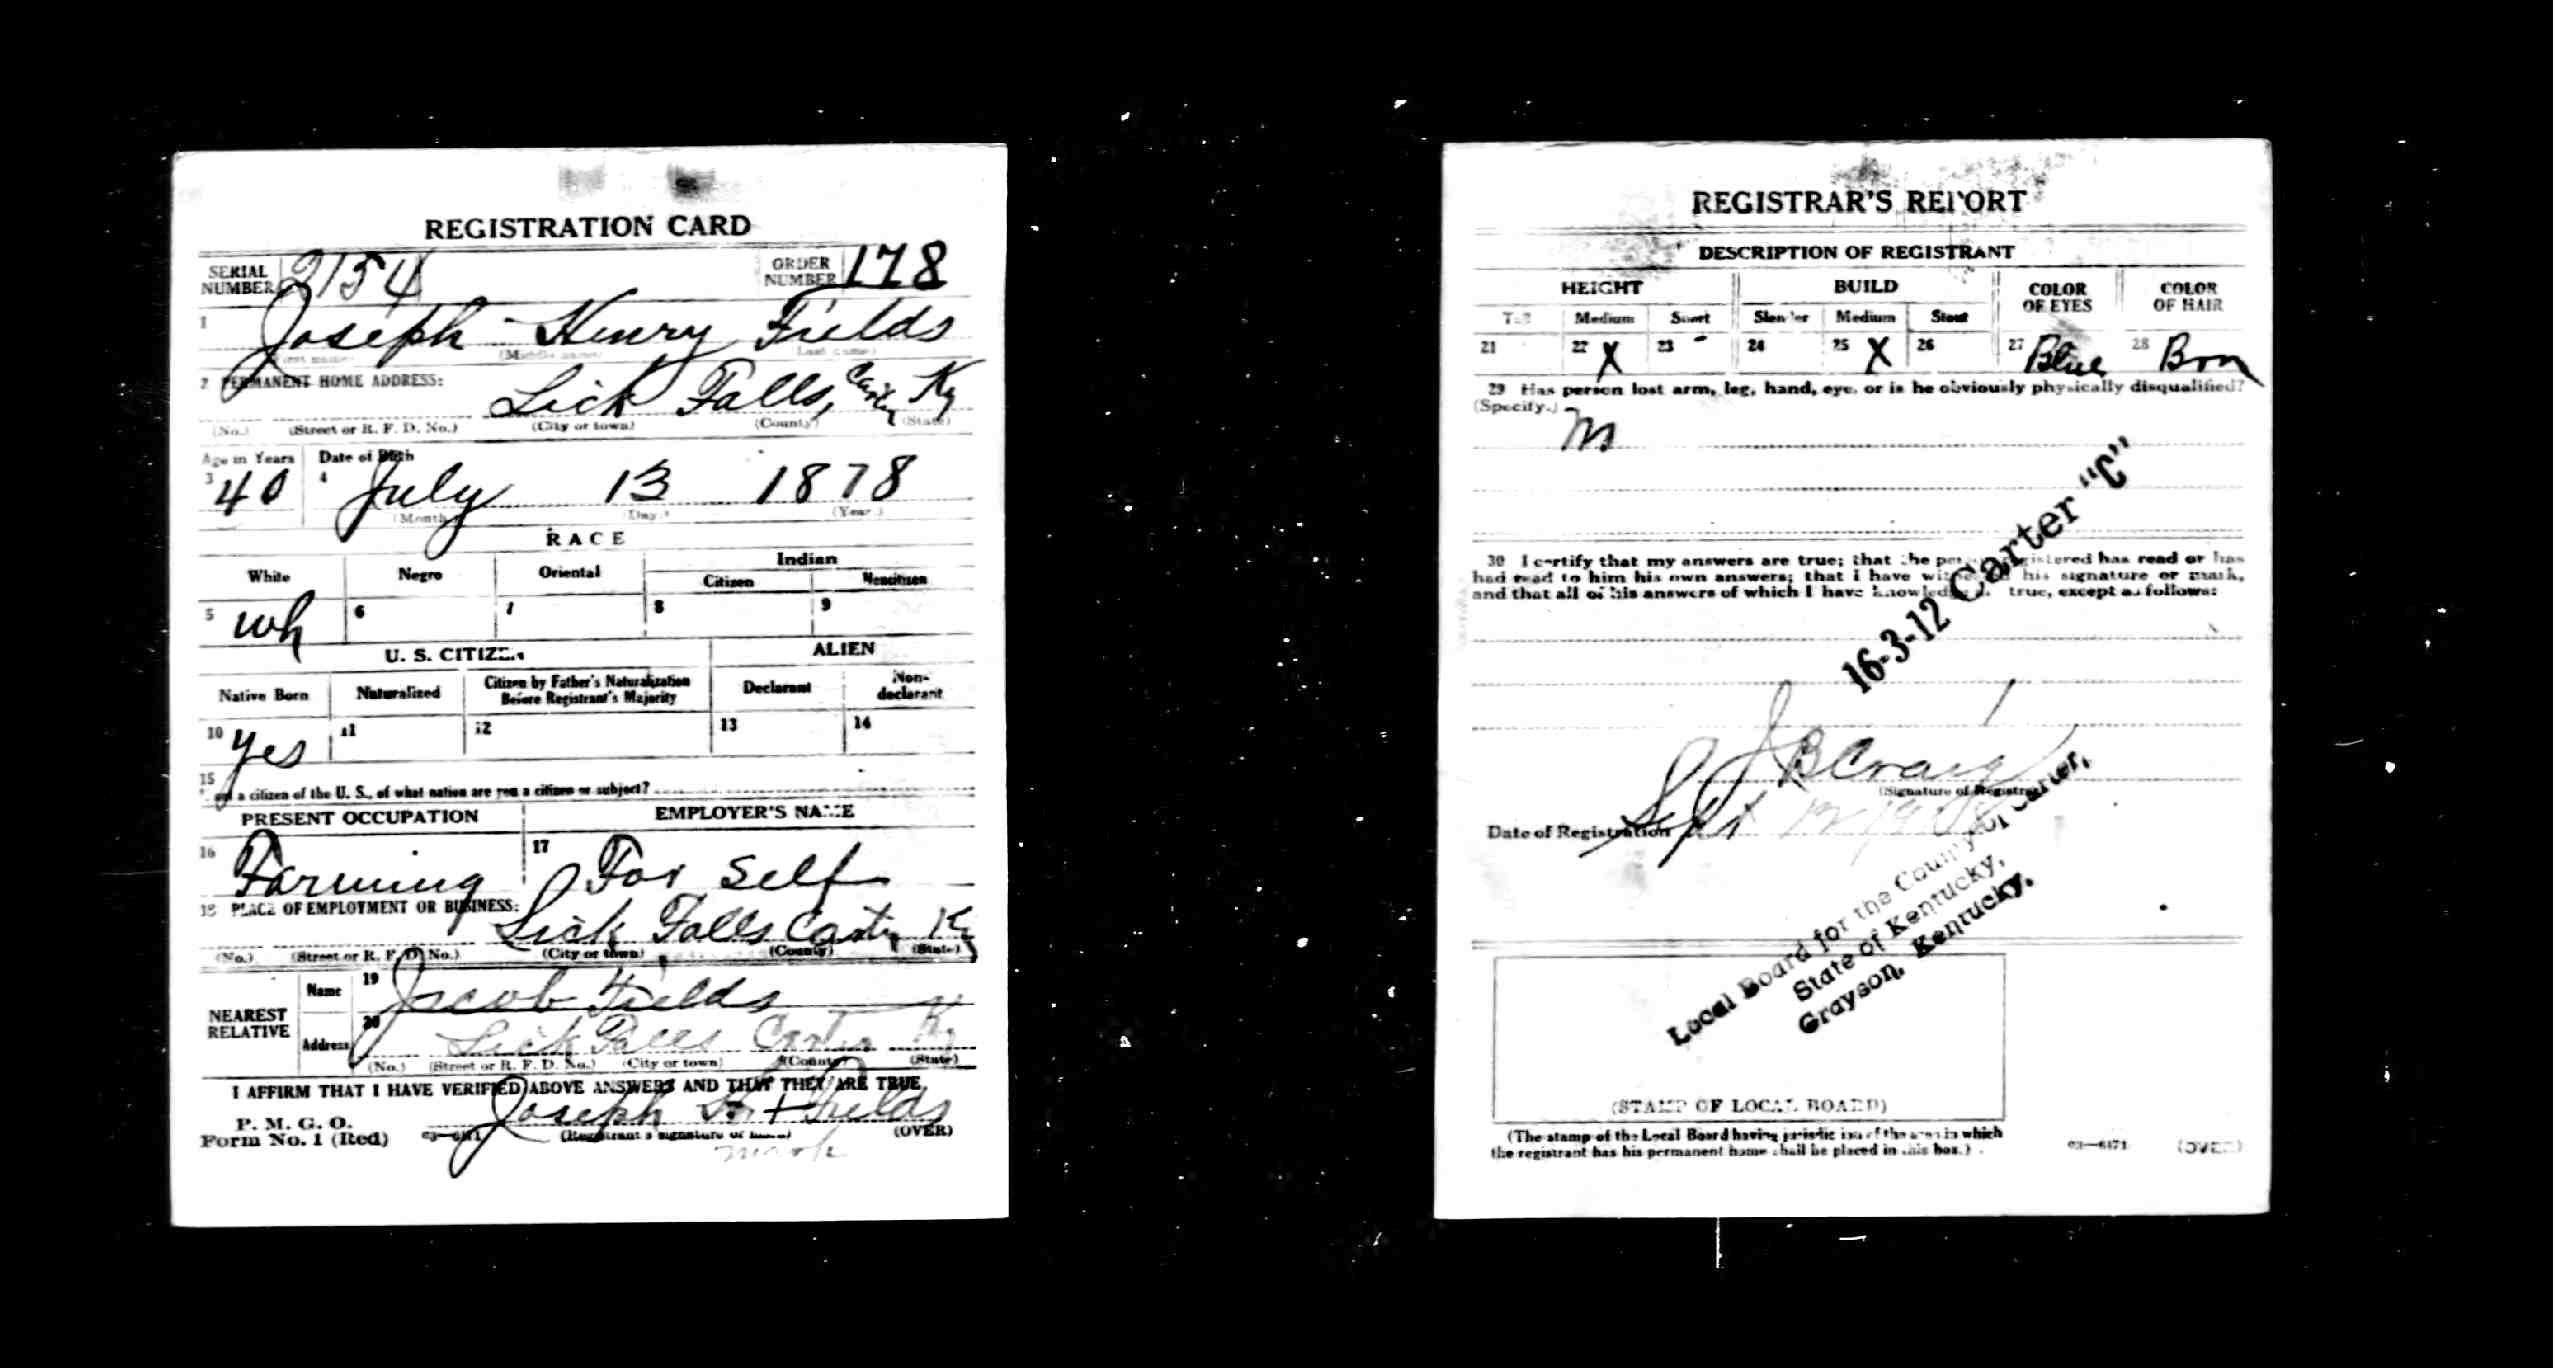 REGISTRATION CARD
SERIAL NUMBER 2154 ORDER NUMBER 178
1 Joseph - Henry Fields
(First name) (Middle name) (Last name)
2 PERMANENT HOME ADDRESS:
Lick Falls, Carter Ky
(No.) (Street or R. F. D. No.) (City or town) (County) (State)
Age in Years Date of Birth
3 40 4 July 13 1878
(Month) (Day) (Year)
RACE
White Negro Oriental Indian
Citizen Noncitizen
5 wh 6 7 8 9
U. S. CITIZEN ALIEN
Native Born Naturalized Citizen by Father's Naturalization Before Registrant's Majority Declarant Non-declarant
10 yes 11 12 13 14
15
not a citizen of the U. S., of what nation are you a citizen or subject?
PRESENT OCCUPATION EMPLOYER'S NAME
16 Farming 17 For Self
18 PLACE OF EMPLOYMENT OR BUSINESS:
Lick Falls Carter Ky
(No.) (Street or R. F. D. No.) (City or town) (County) (State)
NEAREST RELATIVE
Name 19 Jacob Fields
Address 20 Lick Falls Carter Ky
(No.) (Street or R. F. D. No.) (City or town) (County) (State)
I AFFIRM THAT I HAVE VERIFIED ABOVE ANSWERS AND THAT THEY ARE TRUE.
Joseph H + Fields
P. M. G. O.
Form No. 1 (Red) (Registrant's signature or mark) (OVER)
mark
REGISTRAR'S REPORT
DESCRIPTION OF REGISTRANT
HEIGHT BUILD COLOR OF EYES COLOR OF HAIR
Tall Medium Short Slender Medium Stout
21 22 X 23 24 25 X 26 27 Blue 28 Brn
29 Has person lost arm, leg, hand, eye, or is he obviously physically disqualified?
(Specify.)
30 I certify that my answers are true; that the person registered has read or has
had read to him his own answers; that I have witnessed his signature or mark,
and that all of his answers of which I have knowledge are true, except as follows:
16-3-12 Carter "C"
J B Craig
(Signature of Registrar)
Date of Registration Sept 12
Local Board for the County of Carter,
State of Kentucky,
Grayson, Kentucky.
(STAMP OF LOCAL BOARD)
(The stamp of the Local Board having jurisdiction of the area in which
the registrant has his permanent home shall be placed in this box.)
03—6171 (OVER)